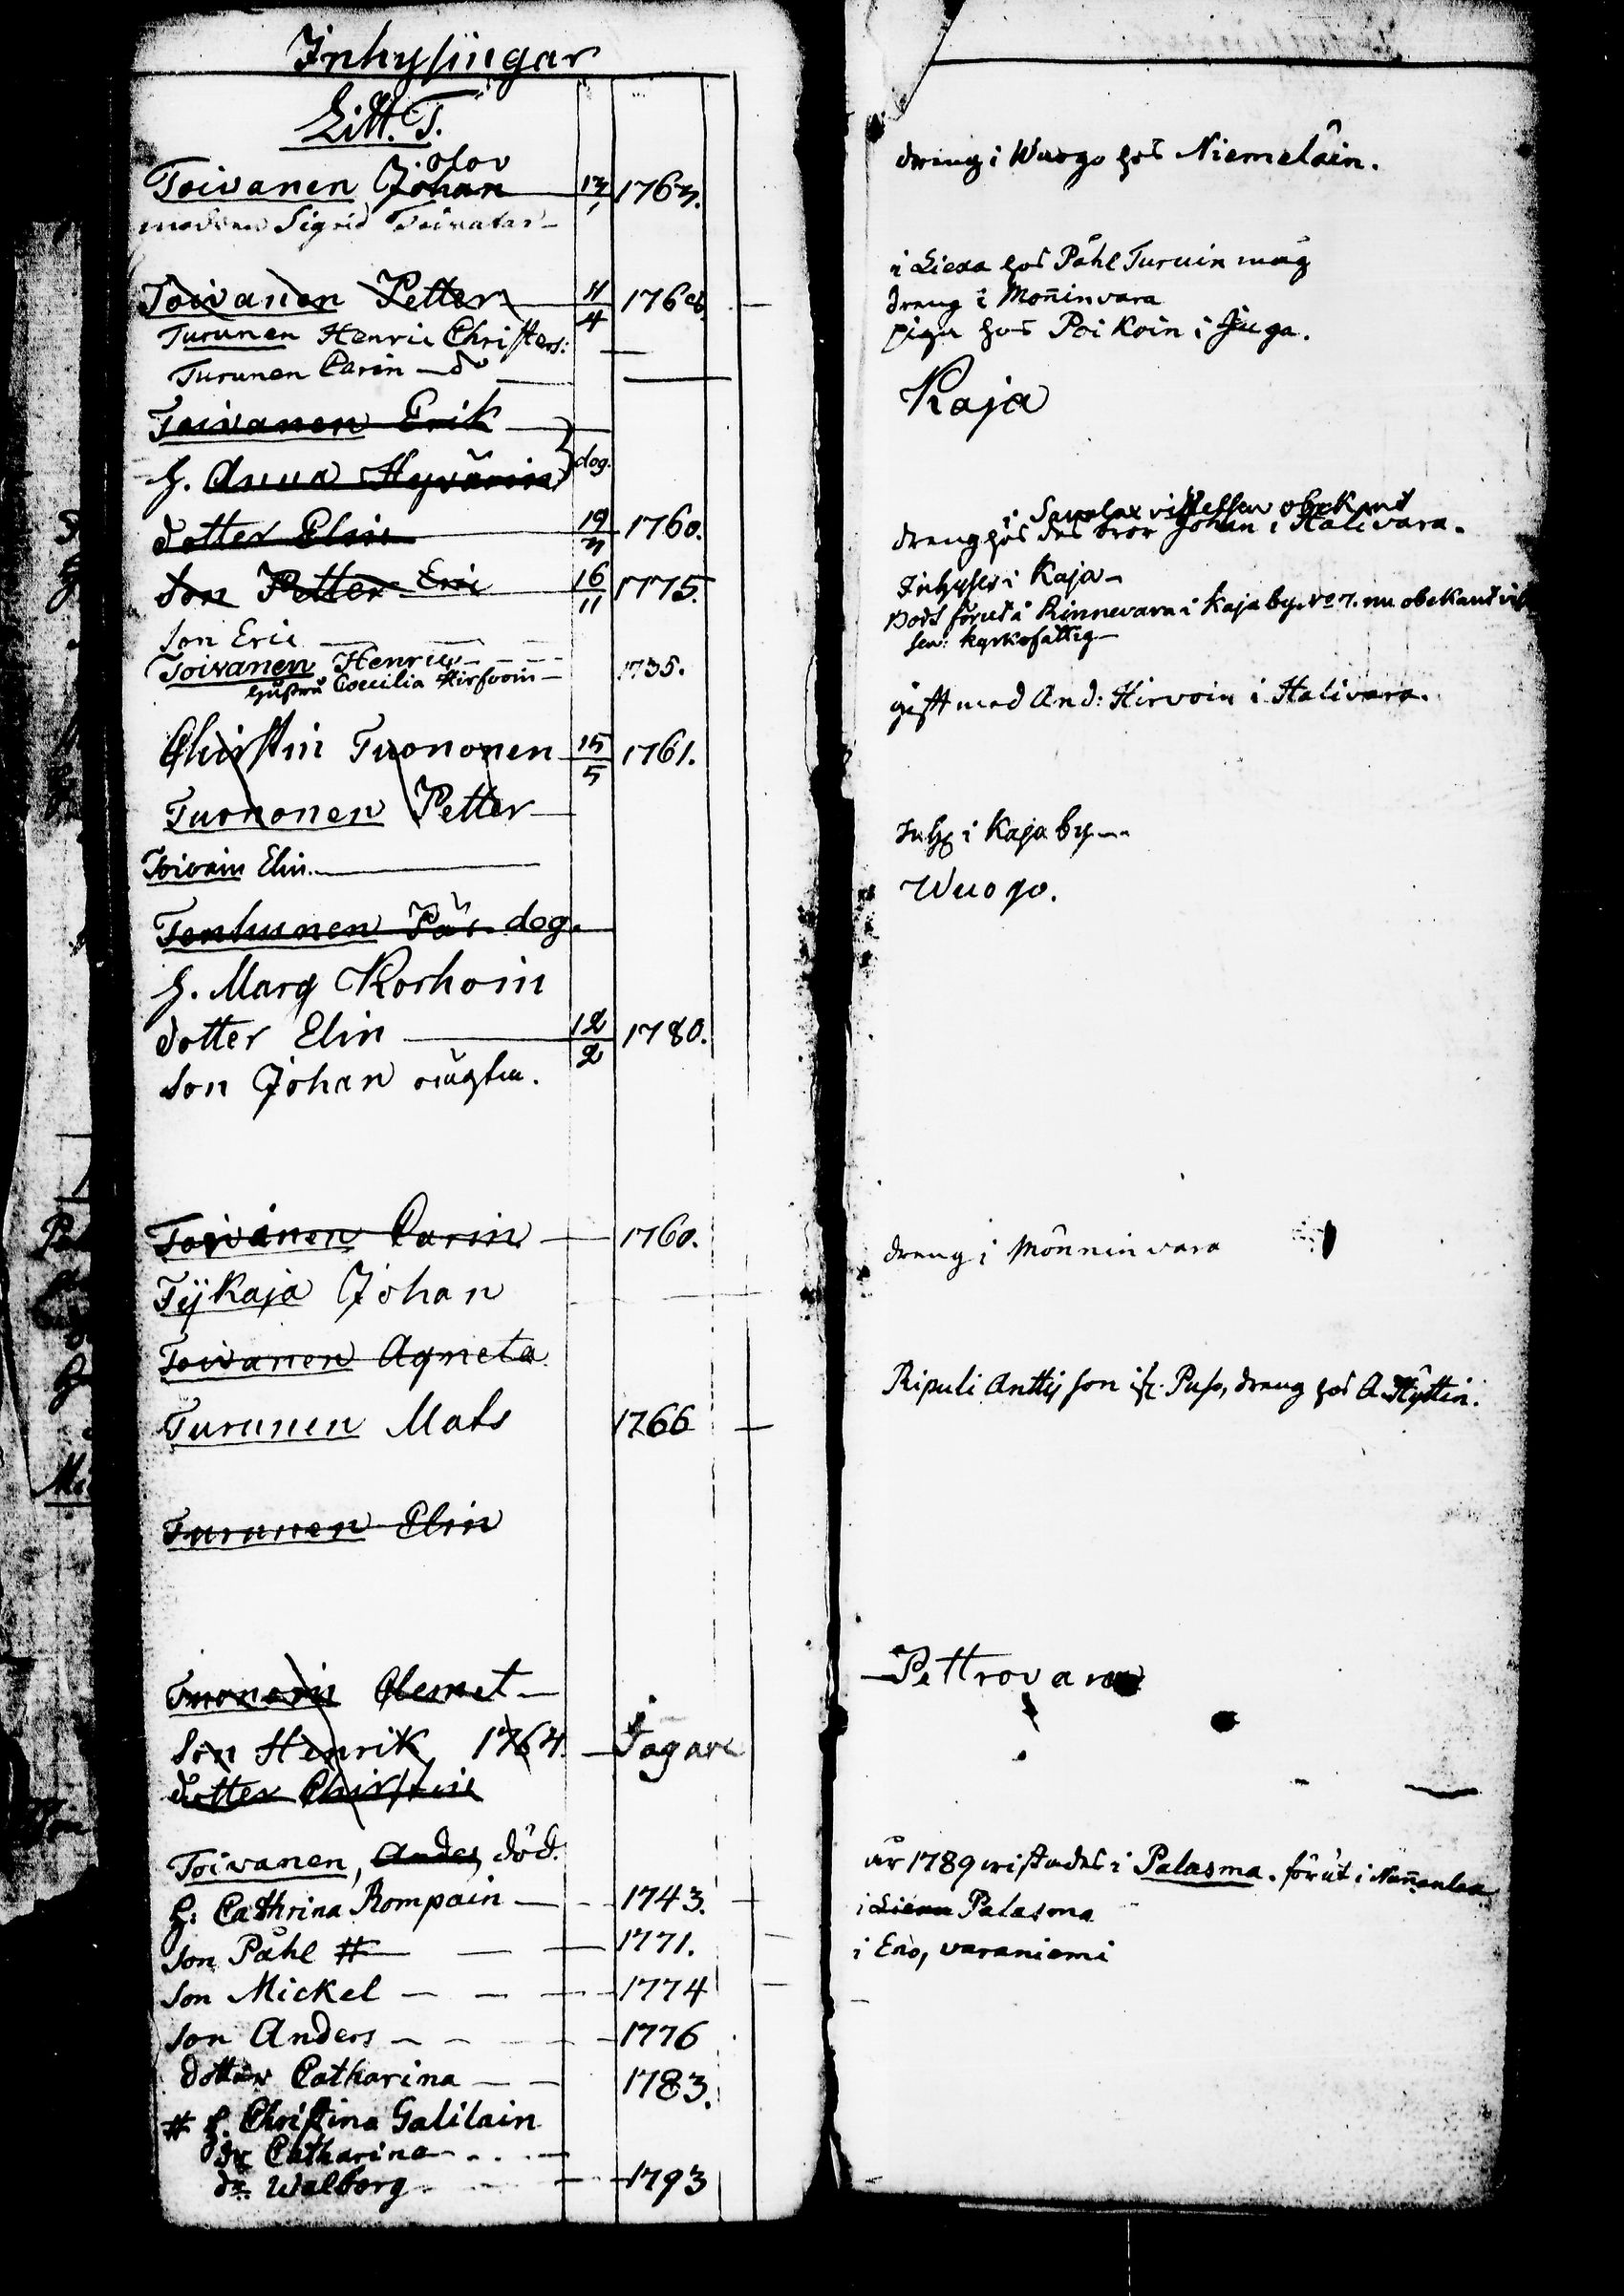 Inhysingar
Litt. T.
Olov
Toivanen Johan 13/1 1763.
modren Sigrid Toivatar
Toivanen Petter 11/4 1768.
Turunen Henric Christers:
Turunen Carin do
Toivanen Erik
h. Anna Hyvärin dog.
dotter Elin 19/3 1760.
Son Petter Eric 16/11 1775.
Son Eric
Toivanen Henric 1735.
hustru Coecilia Hirfvoin
Christin Tuononen 15/5 1761.
Tuononen Petter
Toivain Elin.
Tenhunen Pär dog.
h. Marg Korhoin
dotter Elin 12/2 1780.
Son Johan
Toivanen Carin 1760.
Tykaja Johan
Toivanen Agneta
Turunen Mats 1766
Turunen Elin
Clemet
Son Henrik 1764.
dotter Christin
Toivanen, Anders död.
h: Cathrina Rompain 1743.
Son Påhl # 1771.
Son Mickel 1774
Son Anders 1776
dotter Catharina 1783.
# h. Christina Galilain
dr Catharina
dr. Walborg 1793
dreng i Wuogo hos Niemeläin.
i Liexa hos Påhl Turuin måg
dreng i Moñinvara
piga hos Poikoin i Juga.
Kaja
i Savolax vistelsen obekant
dreng hos des bror Johan i Halivara.
Inhyses i Kaja
Bodt förut i Rinnevara i Kaja by No 7. nu obekant vis
sen: kyrkofattig
gift med And: Hirvoin i Halivara.
Inh i Kaja by
Wuogo.
dreng i Mönninvara
Ripuli Anttis son dreng hos A Hyttin.
Pettrovara
år 1789 vistades i Palasma. förut i
i Liexa Palasma
i Eno, varaniemi